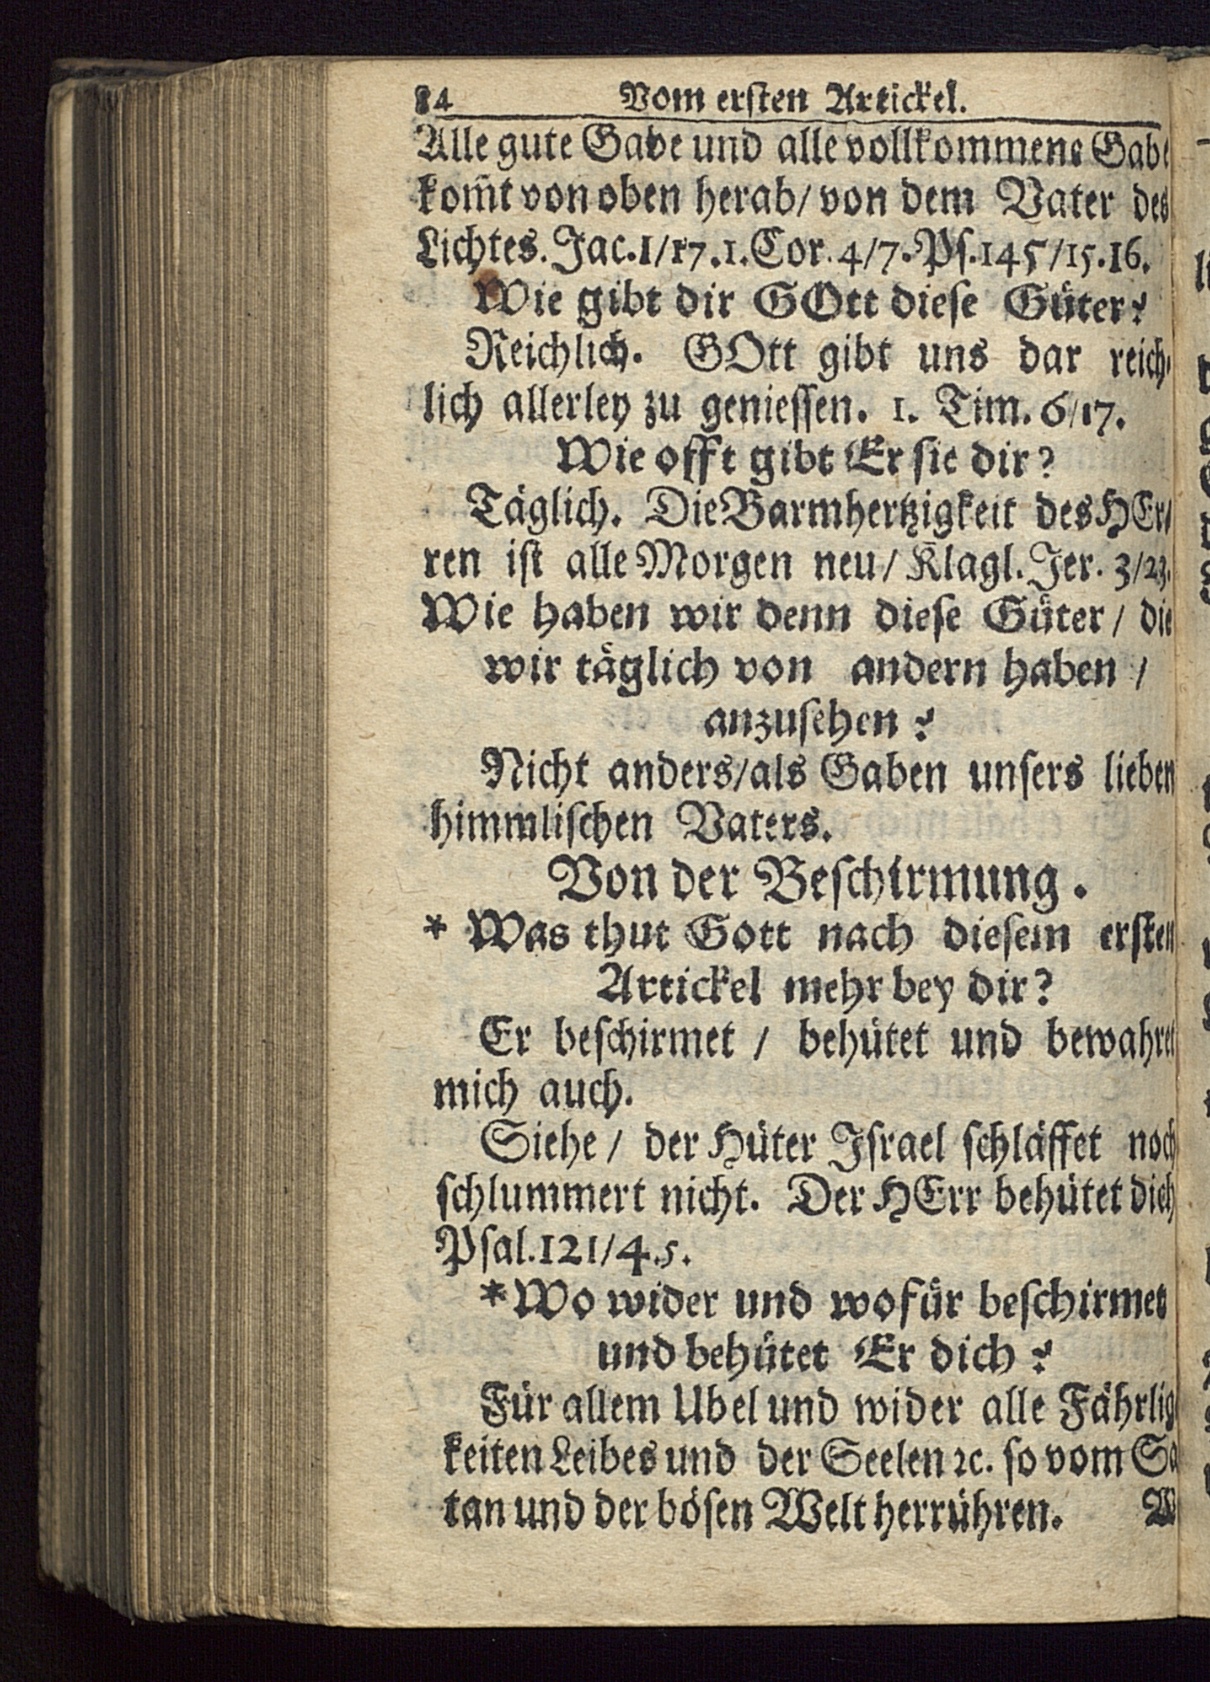 84 Vom ersten Artickel.
Alle gute Gabe und alle vollkommene Gabe
kom̃t von oben herab/ von dem Vater des
Lichtes. Jac.1/17.1.Cor.4/7.Ps.145/15.16.
Wie gibt dir GOtt diese Güter?
Reichlich. GOtt gibt uns dar reich-
lich allerley zu geniessen. 1. Tim. 6/17.
Wie offt gibt Er sie dir?
Täglich. Die Barmhertzigkeit des HEr-
ren ist alle Morgen neu/ Klagl. Jer. 3/23.
Wie haben wir denn diese Güter/ die
wir täglich von andern haben/
anzusehen?
Nicht anders/als Gaben unsers lieben
himmlischen Vaters.
Von der Beschirmung.
* Was thut Gott nach diesem ersten
Artickel mehr bey dir?
Er beschirmet / behütet und bewahret
mich auch.
Siehe / der Hüter Israel schläffet noch
schlummert nicht. Der HErr behütet dich
Psal.121/4.5.
*Wo wider und wofür beschirmet
und behütet Er dich?
Für allem Ubel und wider alle Fährlig
keiten Leibes und der Seelen ꝛc. so vom Sa
tan und der bösen Welt herrühren. W